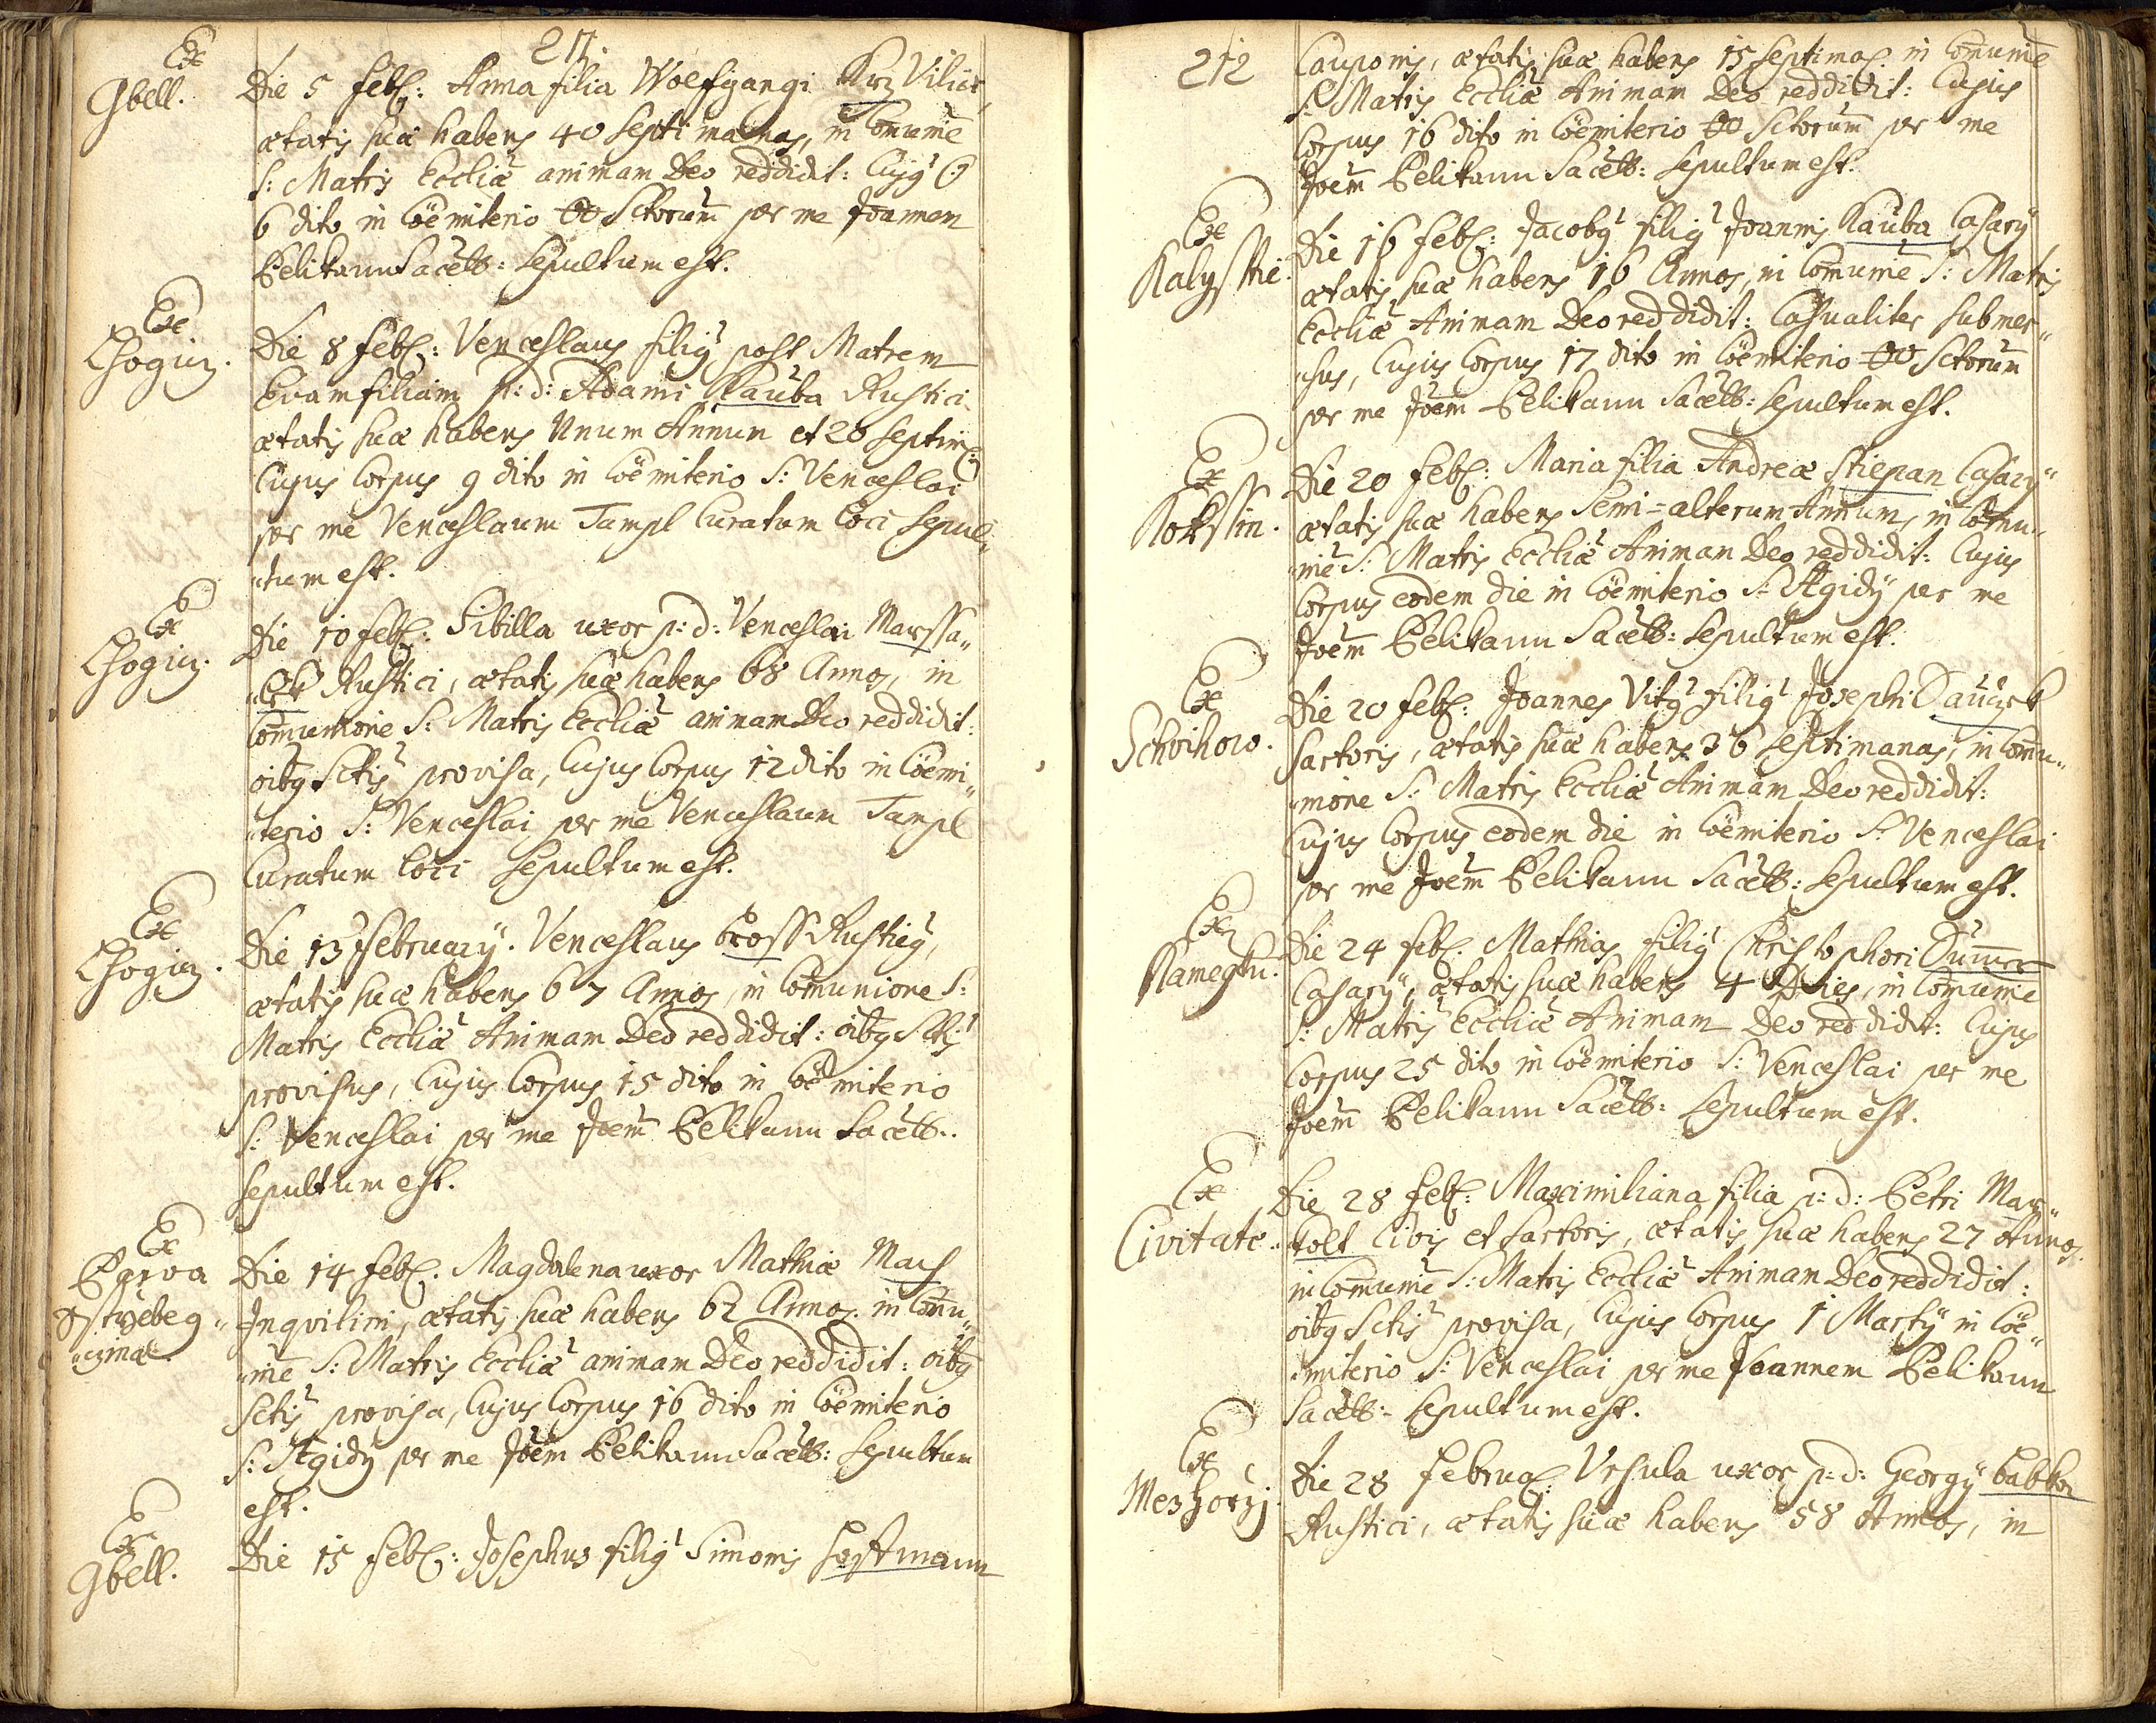 211.
Ex
Gbell.
Die 5 Feb: Anna filia Wolfgangi Krz Vilici,
ætatis suæ habens 40 septimanas, in Comune
S: Matris Eccliæ animam Deo reddidit: Cujg C:
6 dito in Cöemiterio OO Sctorum per me Joannem
Pelikann Sacell: sepultum est.
Ex
Chogin.
Die 8 Feb: Venceslaus filig post Matrem
Evam filiam p: d: Adami Kauba Rustici
ætatis suæ habens Unum Annum et 20 septim:
Cujus Corpus 9 dito in Cöemiterio S: Venceslai
per me Venceslaum Tampl Curatum Loci sepul„
„tum est.
Ex
Chogin.
Die 10 Feb: Sibilla uxor p: d: Venceslai Marssa„
„lek Rustici, ætatis suæ habens 68 Annos, in
Comunione S: Matris Eccliæ animam Deo reddidit:
oibg Sctis provisa, Cujus Corpus 12 dito in Cöemi„
„terio S: Venceslai per me Venceslaum Tampl
Curatum Loci sepultum est.
Ex
Chogin.
Die 13 February. Venceslaus Bross Rusticg,
ætatis suæ habens 67 Annos, in Comunione S:
Matris Eccliæ Animam Deo reddidit: oibg Sctis
provisus, Cujus Corpus 15 dito in Cöemiterio
S: Venceslai per me Joem Pelikann Sacell:
sepultum est.
Ex
Parva
Die 14 Feb: Magdalena uxor Mathiæ Mach
Inqvilini, ætatis suæ habens 62 Annos in Comu„
„ne S: Matris Eccliæ animam Deo reddidit: oibg
Sctis provisa, Cujus Corpus 16 dito in Cöemiterio
S: Ægidy per me Joem Pelikann Sacell: sepultum
est.
Ex
Gbell.
Die 15 Feb: Josephus filig Simonis Hostmann
212
Cauponis, ætatis suæ habens 15 septimas. in Comune
S: Matris Eccliæ Animam Deo reddidit: Cujus
Corpus 16 dito in Cöemiterio OO Sctorum per me
Joem Pelikann Sacell: sepultum est.
Ex
Kalysstie.
Die 16 Feb: Jacobg filig Joannis Kauba Casary
ætatis suæ habens 16 Annos, in Comune S: Matris
Eccliæ Animam Deo reddidit: Casualiter submer„
„sus, Cujus Corpus 17 dito in Cöemiterio OO Sctorum
per me Joem Pelikann Sacell: sepultum est.
Ex
Kokssin.
Die 20 Feb: Maria filia Andreæ Stiepan Casary
ætatis suæ habens Semi=alterum Annum, in Comu„
„ne S: Matris Eccliæ Animam Deo reddidit: Cujus
Corpus eodem die in Cöemiterio S: Ægidy per me
Joem Pelikann Sacell: sepultum est.
Ex
Schwihow.
Die 20 Feb: Joannes Vitg filig Josephi
Sartoris, ætatis suæ habens 36 septimanas, in Comu„
„nione S: Matris Eccliæ Animam Deo reddidit:
Cujus Corpus eodem die in Cöemiterio S: Venceslai
per me Joem Pelikann Sacell: sepultum est.
Ex
Kamegku.
Die 24 Feb: Mathias filig Christophori Dummer
Casary, ætatis suæ habens 4 Dies, in Comune
S: Matris Eccliæ Animam Deo reddidit: Cujus
Corpus 25 dito in Cöemiterio S: Venceslai per me
Joem Pelikann Sacell: sepultum est.
Ex
Civitate.
Die 28 Feb: Maximiliana filia p: d: Petri Mar„
„kolt Civis et Sartoris, ætatis suæ habens 27 Annos,
in Comune S: Matris Eccliæ Animam Deo reddidit:
oibg Sctis provisa, Cujus Corpus 1 Marty in Cöe„
„miterio S: Venceslai per me Joannem Pelikann
Sacell: sepultum est.
Ex
Mezhorzj.
Die 28 Februa: Ursula uxor p: d: Georgy Babka
Rustici, ætatis suæ habens 58 Annos, in